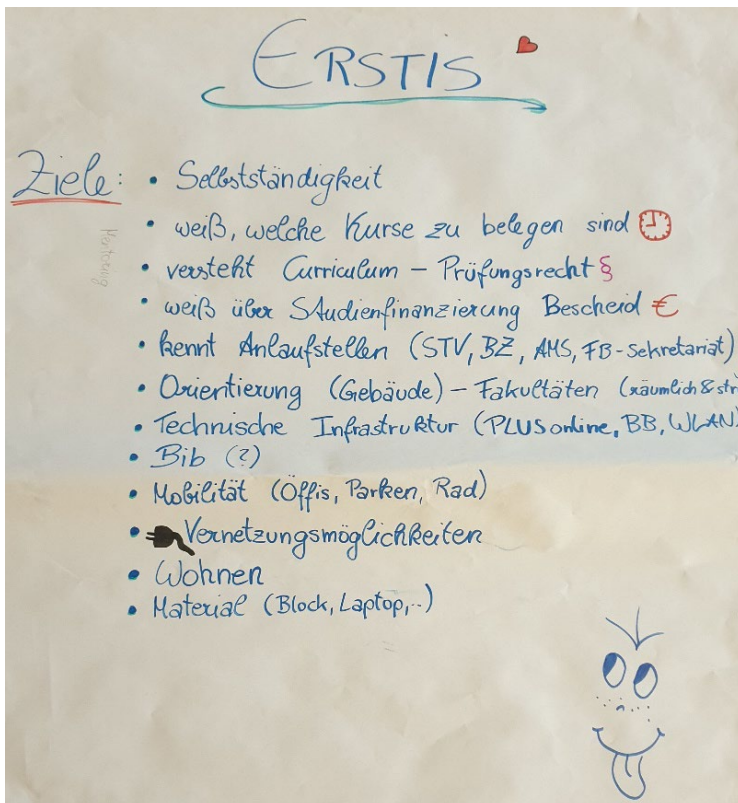 ERSTIS
Ziele: • Selbstständigkeit
• weiß, welche Kurse zu belegen sind
Mentoring
• versteht Curriculum – Prüfungsrecht §
• weiß über Studienfinanzierung Bescheid €
• kennt Anlaufstellen (STV, BZ, AMS, FB-Sekretariat)
• Orientierung (Gebäude) – Fakultäten (räumlich & str
• Technische Infrastruktur (PLUSonline, BB, WLAN)
• Bib (?)
• Mobilität (Öffis, Parken, Rad)
• Vernetzungsmöglichkeiten
• Wohnen
• Material (Block, Laptop,..)